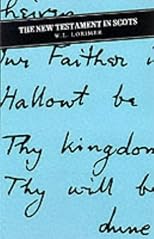 heiven
THE NEW TESTAMENT IN SCOTS
W. L. LORIMER
Our Faither i
Hallowt be
Thy kingdom
Thy will be
dune